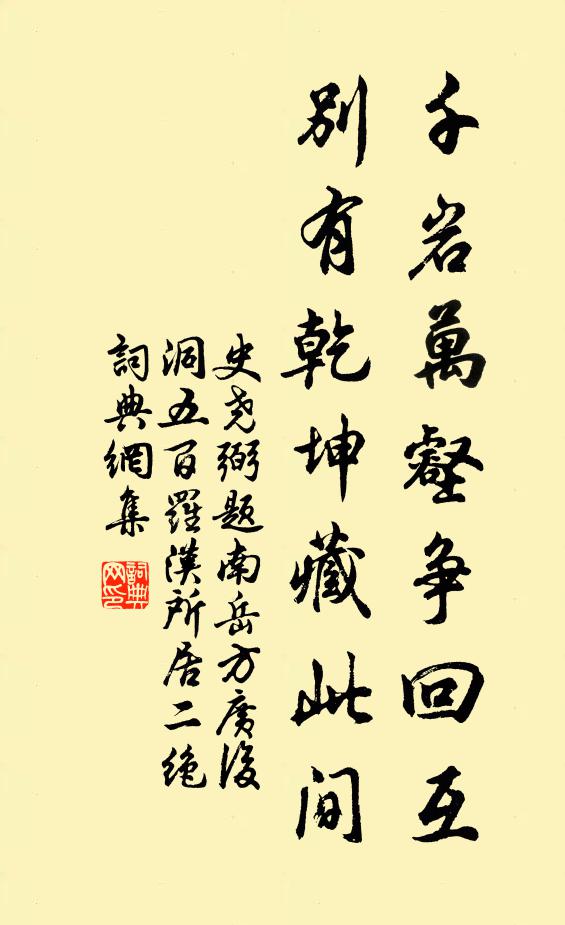 千岩萬壑争回互
別有乾坤藏此间
史尧弼題南岳方廣後
洞五百羅漢所居二絶
詞典網集
詞典
网印